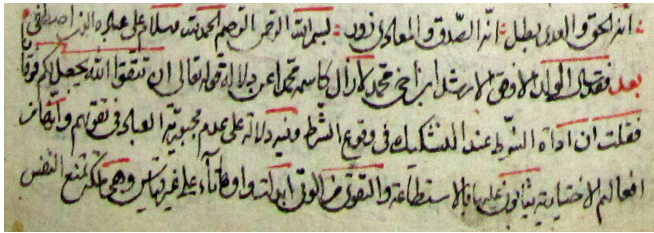 انه الحق والعدى بطل انه الصدق والمعادى زور بسم الله الرحمن الرحيم الحمد لله وسلام على عباده الذين اصطفى
بعد فقد الولد الاوفق الارشد ابن اخى محمد لازال كاسمه محمدا عن دلالة قوله تعالى ان تتقوا الله يجعل لكم فرقانا
فقلت ان اداة الشرط عندا للتشكيك فى وقوع الشرط وفيه دلالة على عدم مجبورية العباد فى تقوىهم وانها من
افعالهم الاختيارية يثابون عليها بالاستطاعة والتقوى من الوقى ابدلت واوها تاء على غير قياس وهى ملكة تمنع النفس